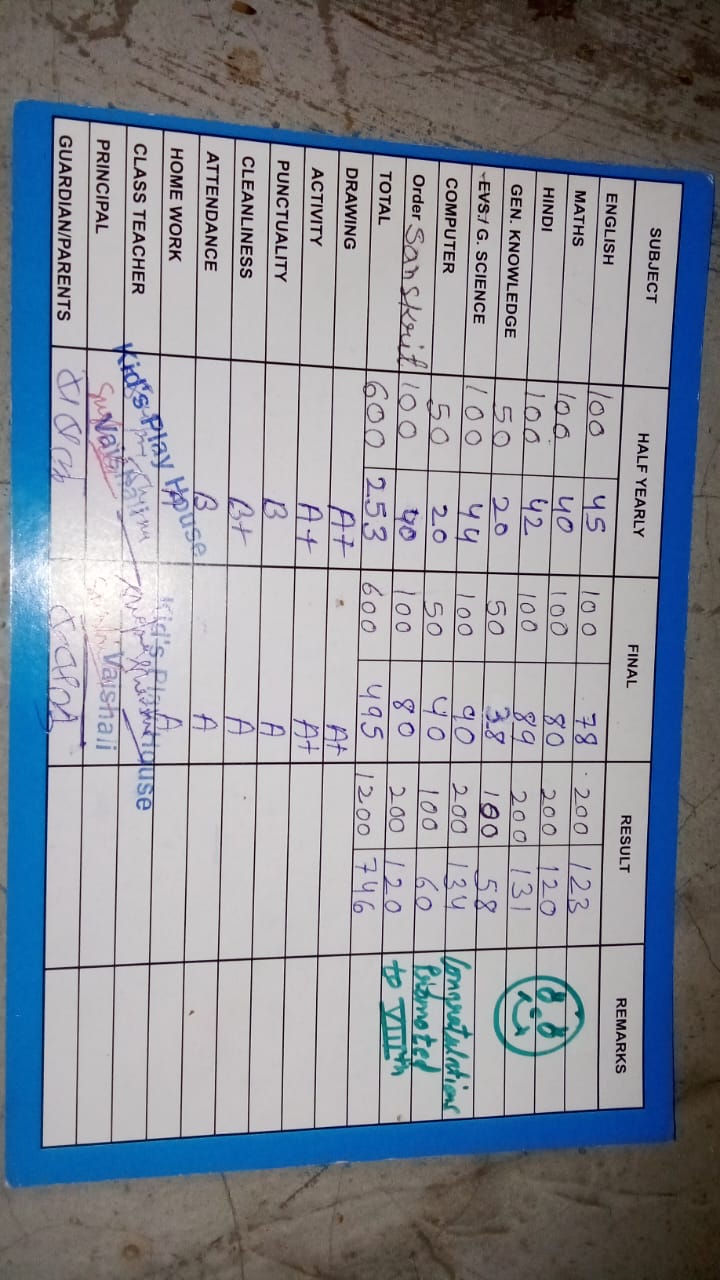 SUBJECT HALF YEARLY FINAL RESULT REMARKS
ENGLISH 100 45 100 78 200 123
MATHS 100 40 100 80 200 120
HINDI 100 42 100 89 200 131
GEN. KNOWLEDGE 50 20 50 38 100 58
EVS./ G. SCIENCE 100 44 100 90 200 134 Congratulations
COMPUTER 50 20 50 40 100 60 Promoted
Order Sanskrit 100 40 100 80 200 120 to VIIIth
TOTAL 600 253 600 495 1200 746
DRAWING A+ A+
ACTIVITY A+ A+
PUNCTUALITY B A
CLEANLINESS B+ A
ATTENDANCE B A
HOME WORK A A
CLASS TEACHER Kid's Play House Kid's Play House
PRINCIPAL Vaishali Vaishali
GUARDIAN/PARENTS